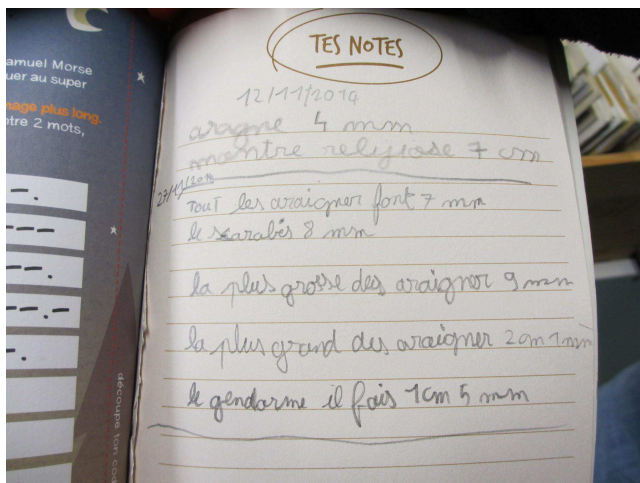 amuel Morse
uer au super
mage plus long.
ntre 2 mots,
découpe ton co
TES NOTES
12/11/2014
aragne 4 mm
mantre religiose 7 cm
27/11/2014
Tout les araigner font 7 mm
le scarabés 8 mm
la plus grosse des araigner 9 mm
la plus grand des araigner 2 cm 1 mm
le gendarme il fais 1 cm 5 mm